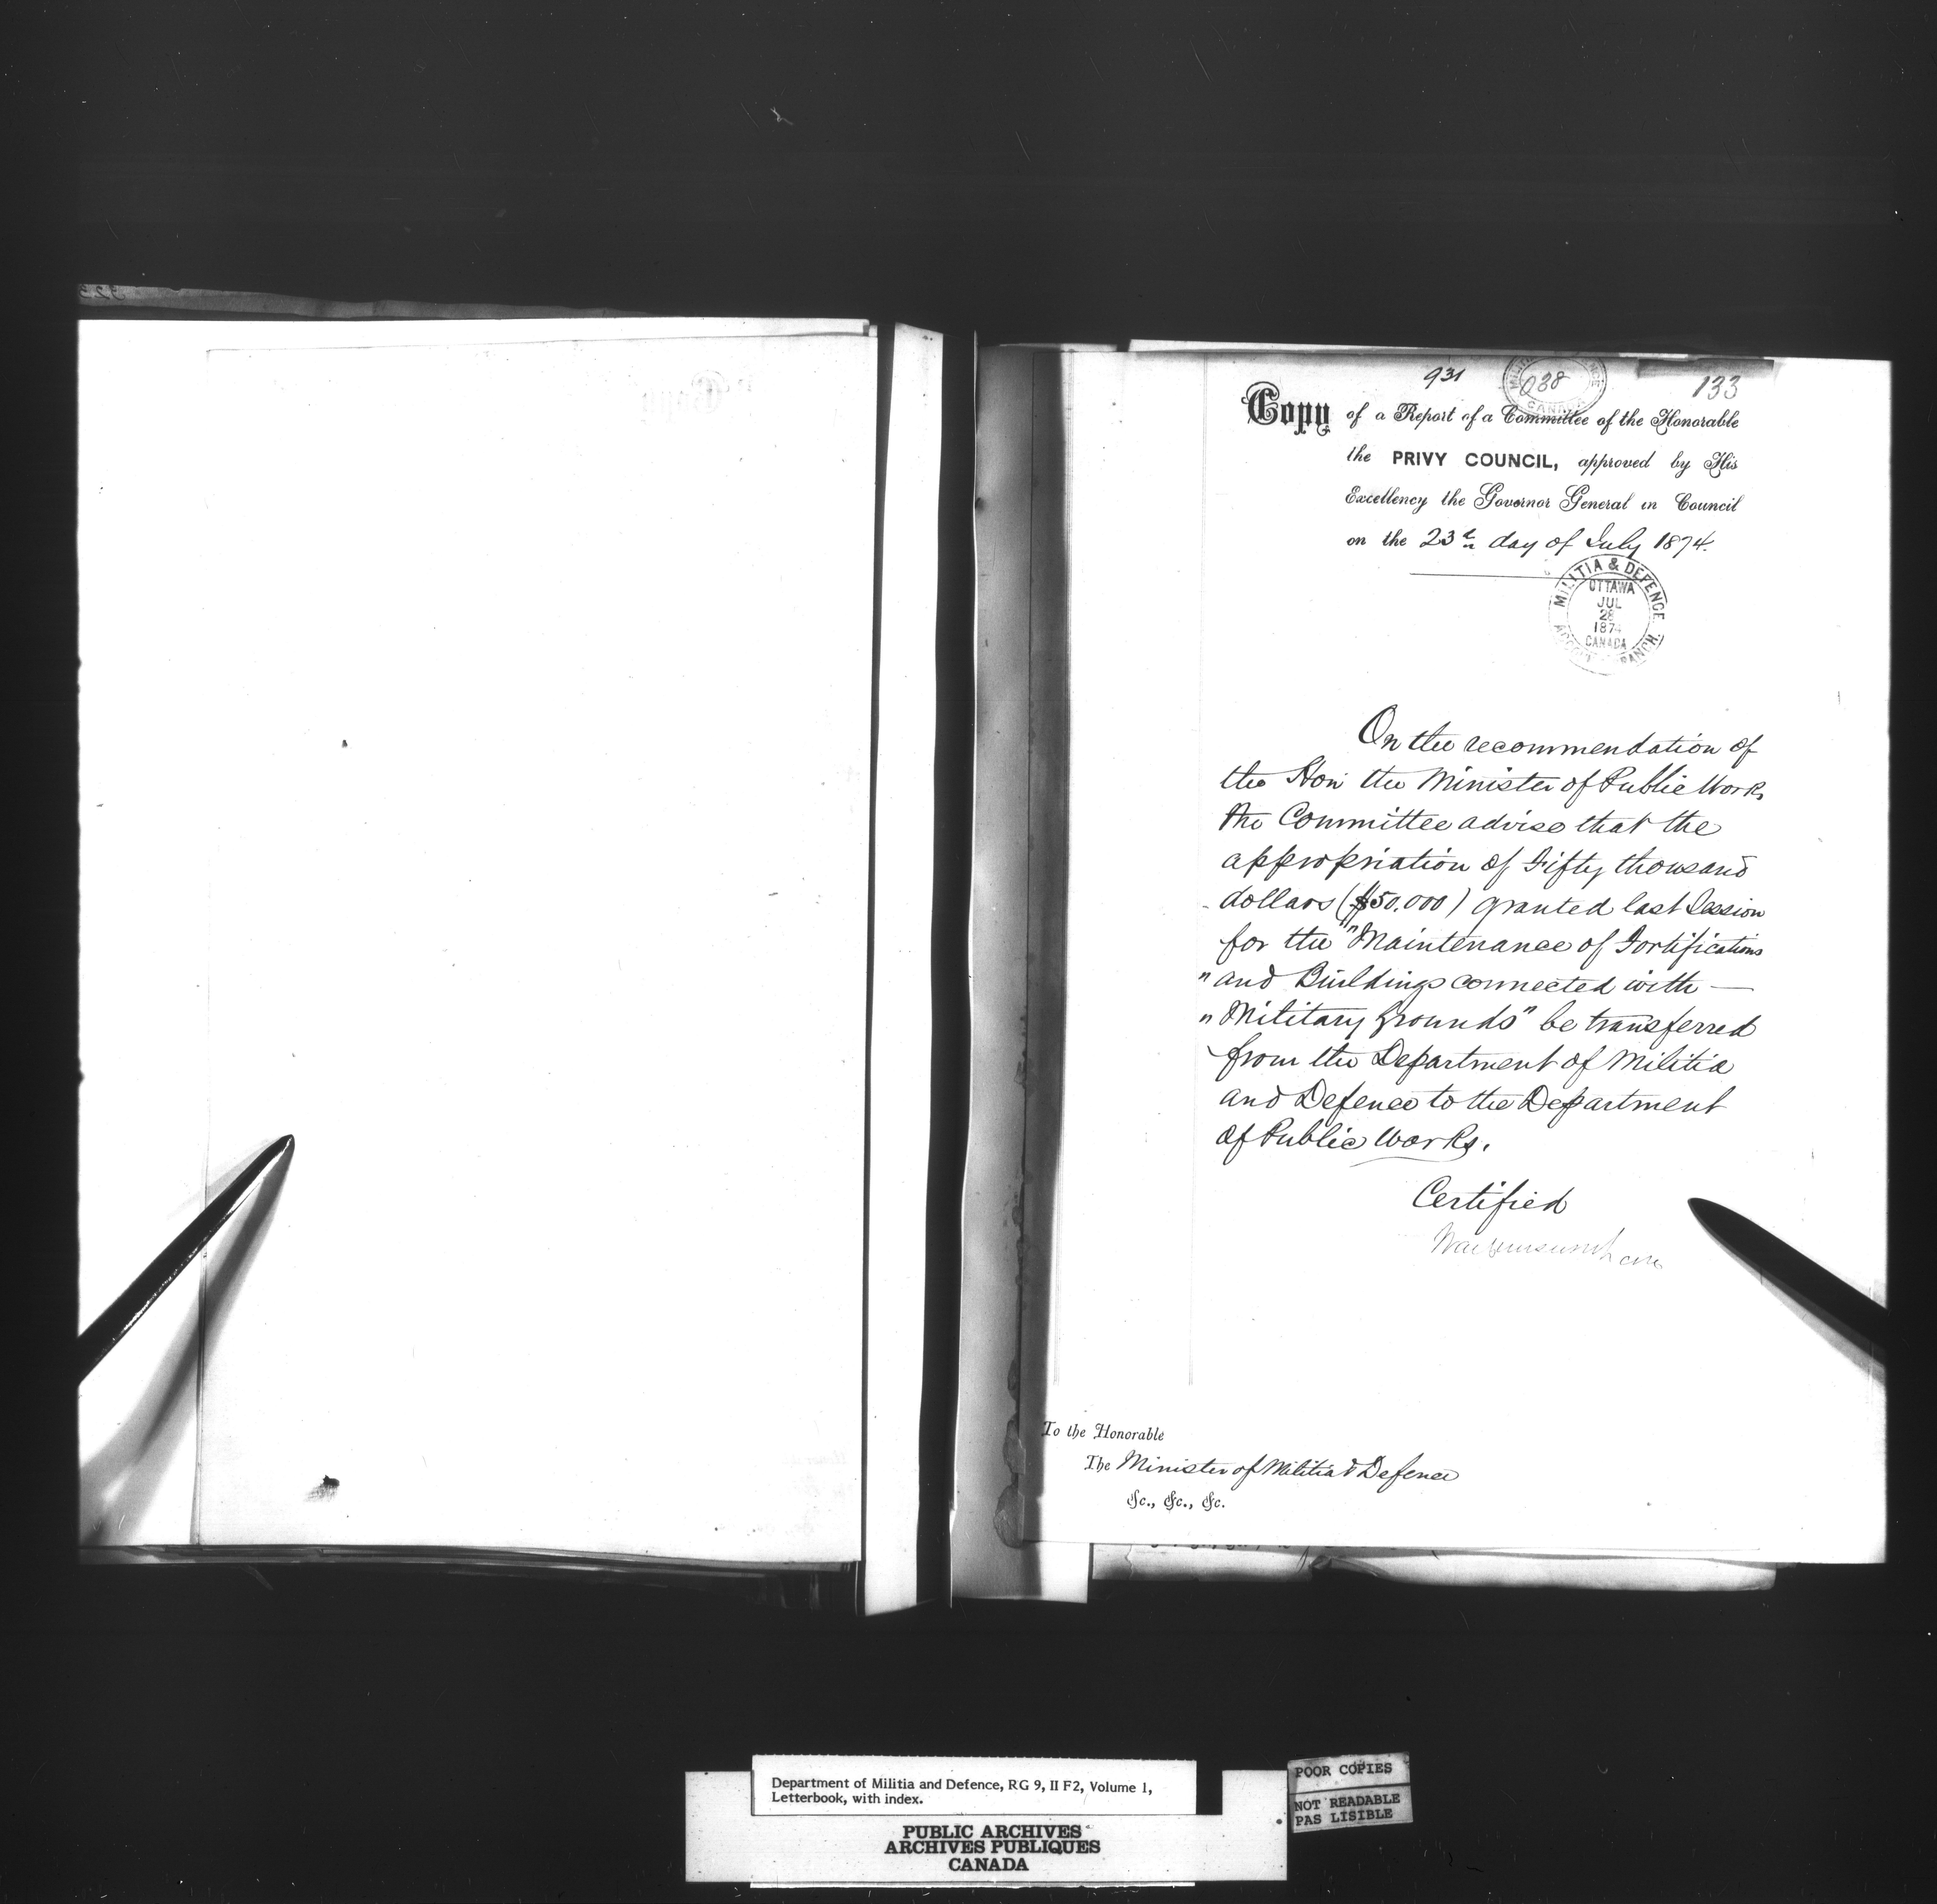 931
038
133
Copy of a Report of a Committee of the Honorable
the PRIVY COUNCIL, approved by His
Excellency the Governor General in Council
on the 23th day of July 1874.
MILITIA & DEFENCE
OTTAWA
JUL
28
1874
CANADA
On the recommendation of
the Hon the Minister of Public Works
the Committee advise that the
appropriation of Fifty thousand
dollars ($50.000) granted last Session
for the "Maintenance of Fortifications
" and Buildings connected with —
" Military Grounds" be transferred
from the Department of Militia
and Defence to the Department
of Public Works.
Certified
To the Honorable
The Minister of Militia & Defence
&c., &c., &c.
Department of Militia and Defence, RG 9, II F2, Volume 1,
Letterbook, with index.
PUBLIC ARCHIVES
ARCHIVES PUBLIQUES
CANADA
POOR COPIES
NOT READABLE
PAS LISIBLE